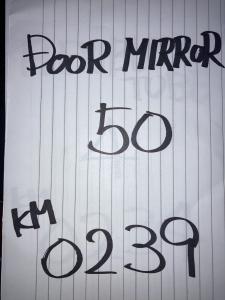 DOOR MIRROR
50
KM
0239